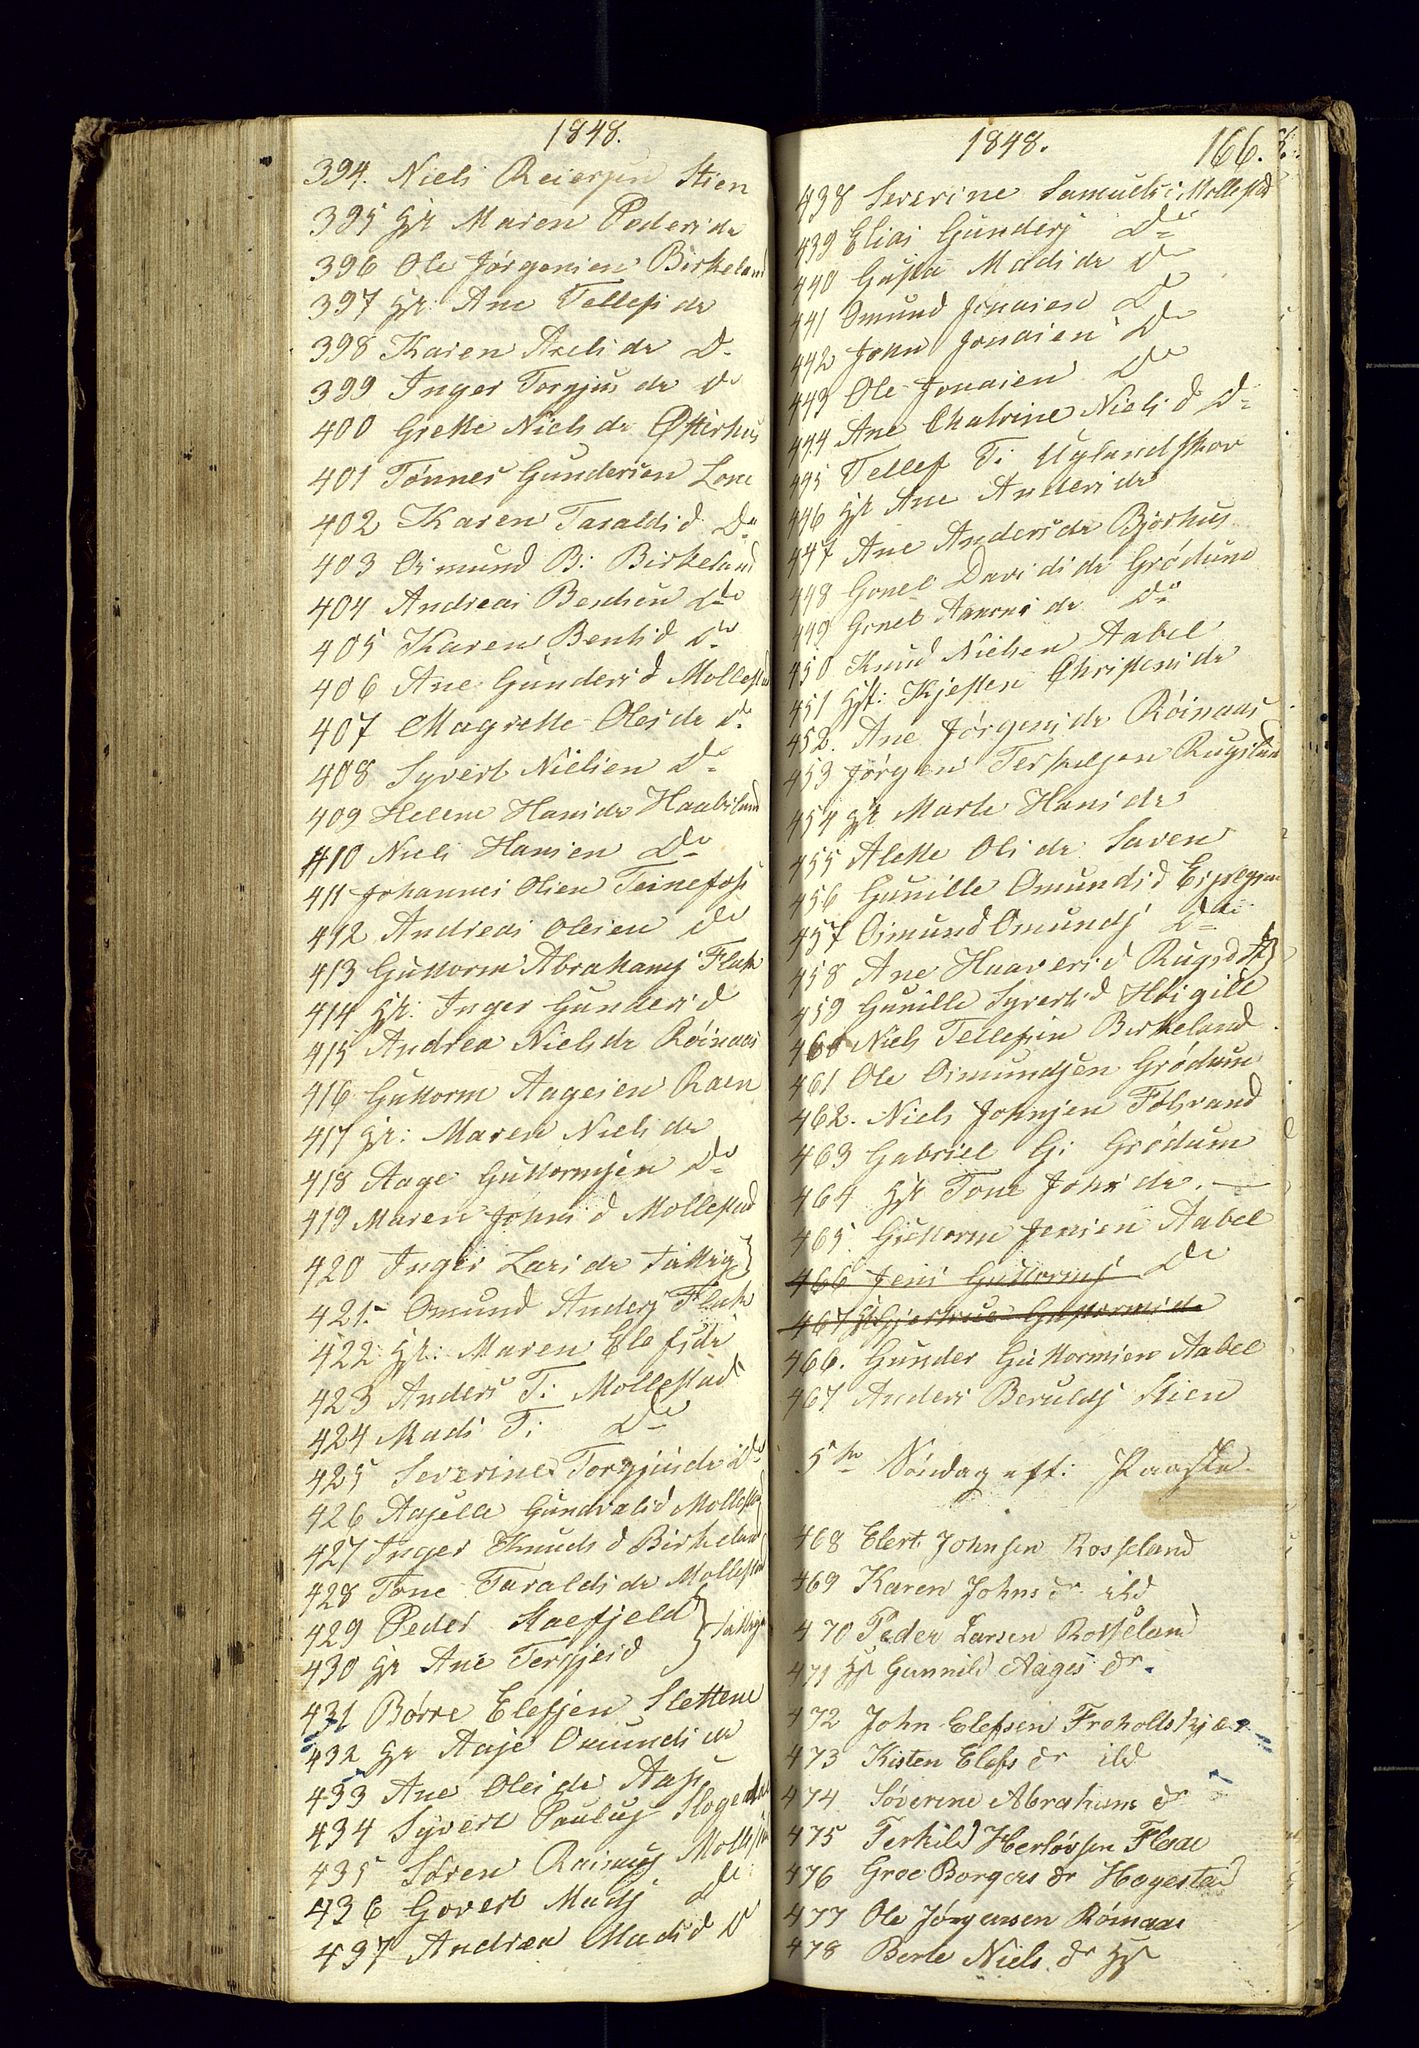 1848.
394. Niels Reiersen Stien
395 Hst Maren Peders dr
396 Ole Jørgensen Birkeland
397 Hst. Ane Tellefs dr
398 Karen Axels dr Do
399 Inger Torgjus dr Do
400 Grette Niels dr Østerhus
401 Tønnes Gundersen Lone
402 Karen Taralds d Do
403 Osmund B: Birkeland
404 Andreas Bentsen Do
405 Karen Bents d Do
406 Ane Gunders d Mollestad
407 Magrette Oles dr Do
408 Syvert Nielsen Do
409 Helene Hans dr Haabesland
410 Niels Hansen Do
411 Johannes Olsen Teinefoss
412 Andreas Olesen Do
413 Guttorm Abrahams Flak
414 Hst. Inger Gunders d
415 Andrea Niels dr Røinaas
416 Guttorm Aagesen Raen
417 Hst: Maren Niels dr
418 Aage Guttormsen Do
419 Maren Johns d Mollestad
420 Inger Lars dr Fattig
421. Omund Anders Flak
422 Hst: Maren Elefs dr
423 Anders T: Mollestad
424 Mads T: Do
425 Severine Torgjus dr Do
426 Gundvalds d Mollestad
427 Inger Knuds d Birkeland
428 Tone Taralds dr Mollestad
429 Peder
430 Hst Ane Terkjels d
Fattige
431 Børre Elefsen Slettene
432 Hst Aase Omunds dr
433 Ane Oles dr Aas
434 Syvert Pauls
435 Søren Rasmus Mollestad
436 Govert Mads Do
437 Andrea Mads d Do
1848. 166.
438 Severine Samuels: Mollestad
439 Elias Gunders Do
440 Gusta Mads dr Do
441 Omund Jonasen Do
442 John Jonasen Do
443 Ole Jonasen Do
444 Ane Chatrine Niels d Do
445 Tellef T: Uglandskor
446 Hst Ane Anders dr
447 Ane Anders dr Bjørhus
448 Gonel Davids dr Grødum
449 Gonel Aanons dr Do
450 Knud Nielsen Aabel
451 Hst: Kjesten Christens dr
452. Ane Jørgens dr Røinaas
453 Jørgen Terkelsen Rugsland
454 Hst Marte Hans dr
455 Alette Ols dr Saven
456 Gunille Omunds d Espegren
457 Osmund Omunds Do
458 Ane Haavers d
459 Gunille Syverts d Høigilt
460 Niels Tellefsen Birkeland
461 Ole Osmundsen Grødum
462. Niels Johnsen Følsvand
463 Gabriel G: Grødum
464 Hst Tone Johns dr.
465. Guttorm Jensen Aabel
466 Jens Guttorms Do
467 Hst Gjertrue Guttorms dr
466. Gunder Guttormsen Aabel
467 Anders Berulds Stien
5te Søndag eft: Paaske
468 Elert Johnsen Rosseland
469 Karen Johns dr ibd
470 Peder Larsen Rosseland
471 Hst Gunnild Aages dr.
472 John Elefsen Froholtskjær
473 Kisten Elefs dr ibd
474 Søverine Abrahams dr
475 Terkild Herløvsen Flaae
476 Groe Borgers dr Hegestad
477 Ole Jørgensen Róinaas
478 Berte Niels dr Hst